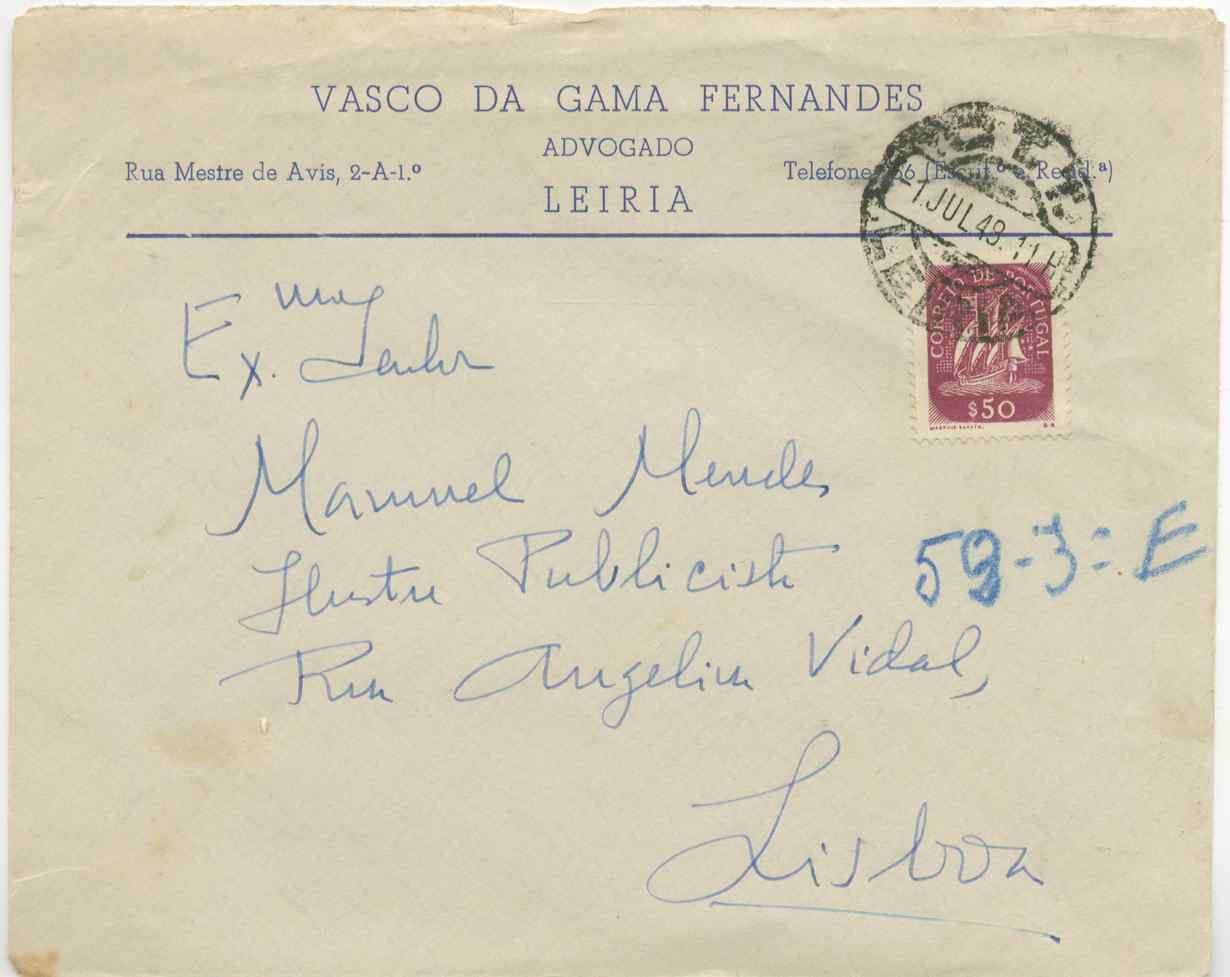 VASCO DA GAMA FERNANDES
ADVOGADO
Rua Mestre de Avis, 2-A-1.º
Telefone 66 (Escrit.º e Resid.ª)
LEIRIA
-1 JUL 48. 11 H
CORREIO DE PORTUGAL
$50
Ex.mo Senhor
Manuel Mendes
Ilustre Publicista
59-3=E
Rua Angelina Vidal,
Lisboa